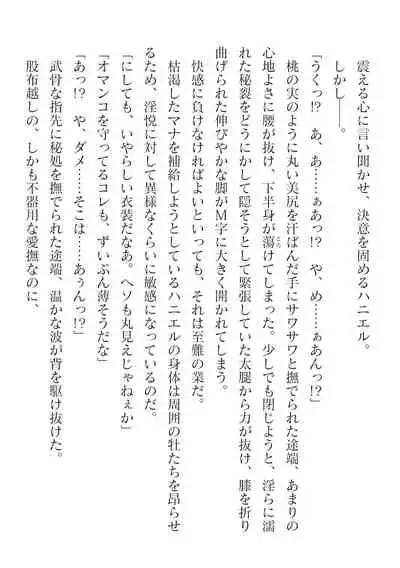 震える心に言い聞かせ、決意を固めるハニエル。
しかし――。
「うくっ!?　あ、あ……ぁあっ!?　や、め……ぁあんっ!?」
桃の実のように丸い美尻を汗ばんだ手にサワサワと撫でられた途端、あまりの
心地よさに腰が抜け、下半身が蕩けてしまった。少しでも閉じようと、淫らに濡
れた秘裂をどうにかして隠そうとして緊張していた太腿から力が抜け、膝を折り
曲げられた伸びやかな脚がＭ字に大きく開かれてしまう。
快感に負けなければよいといっても、それは至難の業だ。
枯渇したマナを補給しようとしているハニエルの身体は周囲の牡たちを昂らせ
るため、淫悦に対して異様なくらいに敏感になっているのだ。
「にしても、いやらしい衣装だなあ。ヘソも丸見えじゃねぇか」
「オマンコを守ってるコレも、ずいぶん薄そうだな」
「あっ!?　や、ダメ……そこは……あぅんっ!?」
武骨な指先に秘処を撫でられた途端、温かな波が背を駆け抜けた。
股布越しの、しかも不器用な愛撫なのに、